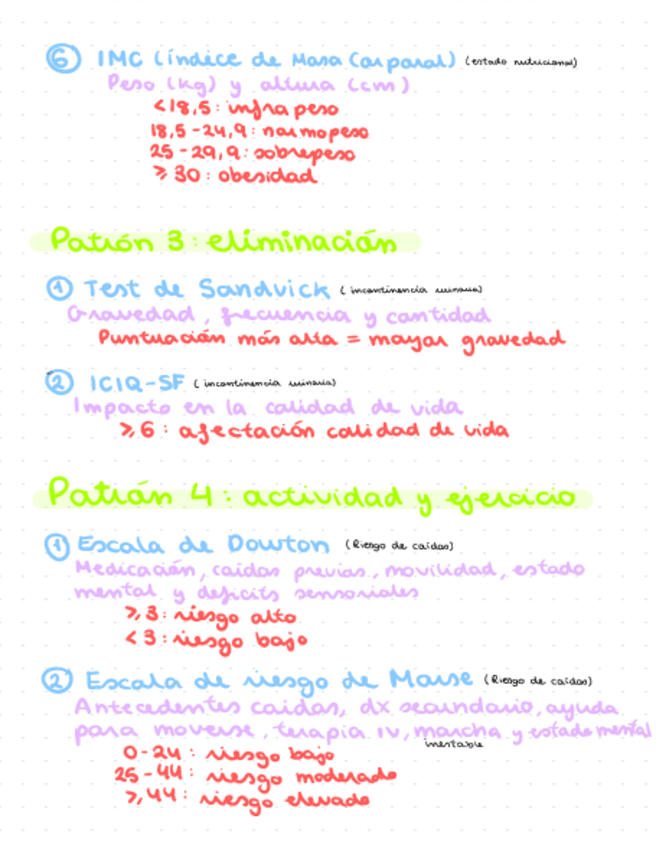 ⑥ IMC (índice de Masa Corporal) (estado nutricional)
Peso (kg) y altura (cm)
<18,5: infrapeso
18,5-24,9: normopeso
25-29,9: sobrepeso
≥30: obesidad
Patrón 3: eliminación
① Test de Sandvick (incontinencia urinaria)
Gravedad, frecuencia y cantidad
Puntuación más alta = mayor gravedad
② ICIQ-SF (incontinencia urinaria)
Impacto en la calidad de vida
≥6: afectación calidad de vida
Patrón 4: actividad y ejercicio
① Escala de Dowton (Riesgo de caídas)
Medicación, caídas previas, movilidad, estado
mental y deficits sensoriales
≥3: riesgo alto
<3: riesgo bajo
② Escala de riesgo de Morse (Riesgo de caídas)
Antecedentes caídas, dx secundario, ayuda
para moverse, terapia IV, marcha y estado mental
inestable
0-24: riesgo bajo
25-44: riesgo moderado
≥44: riesgo elevado